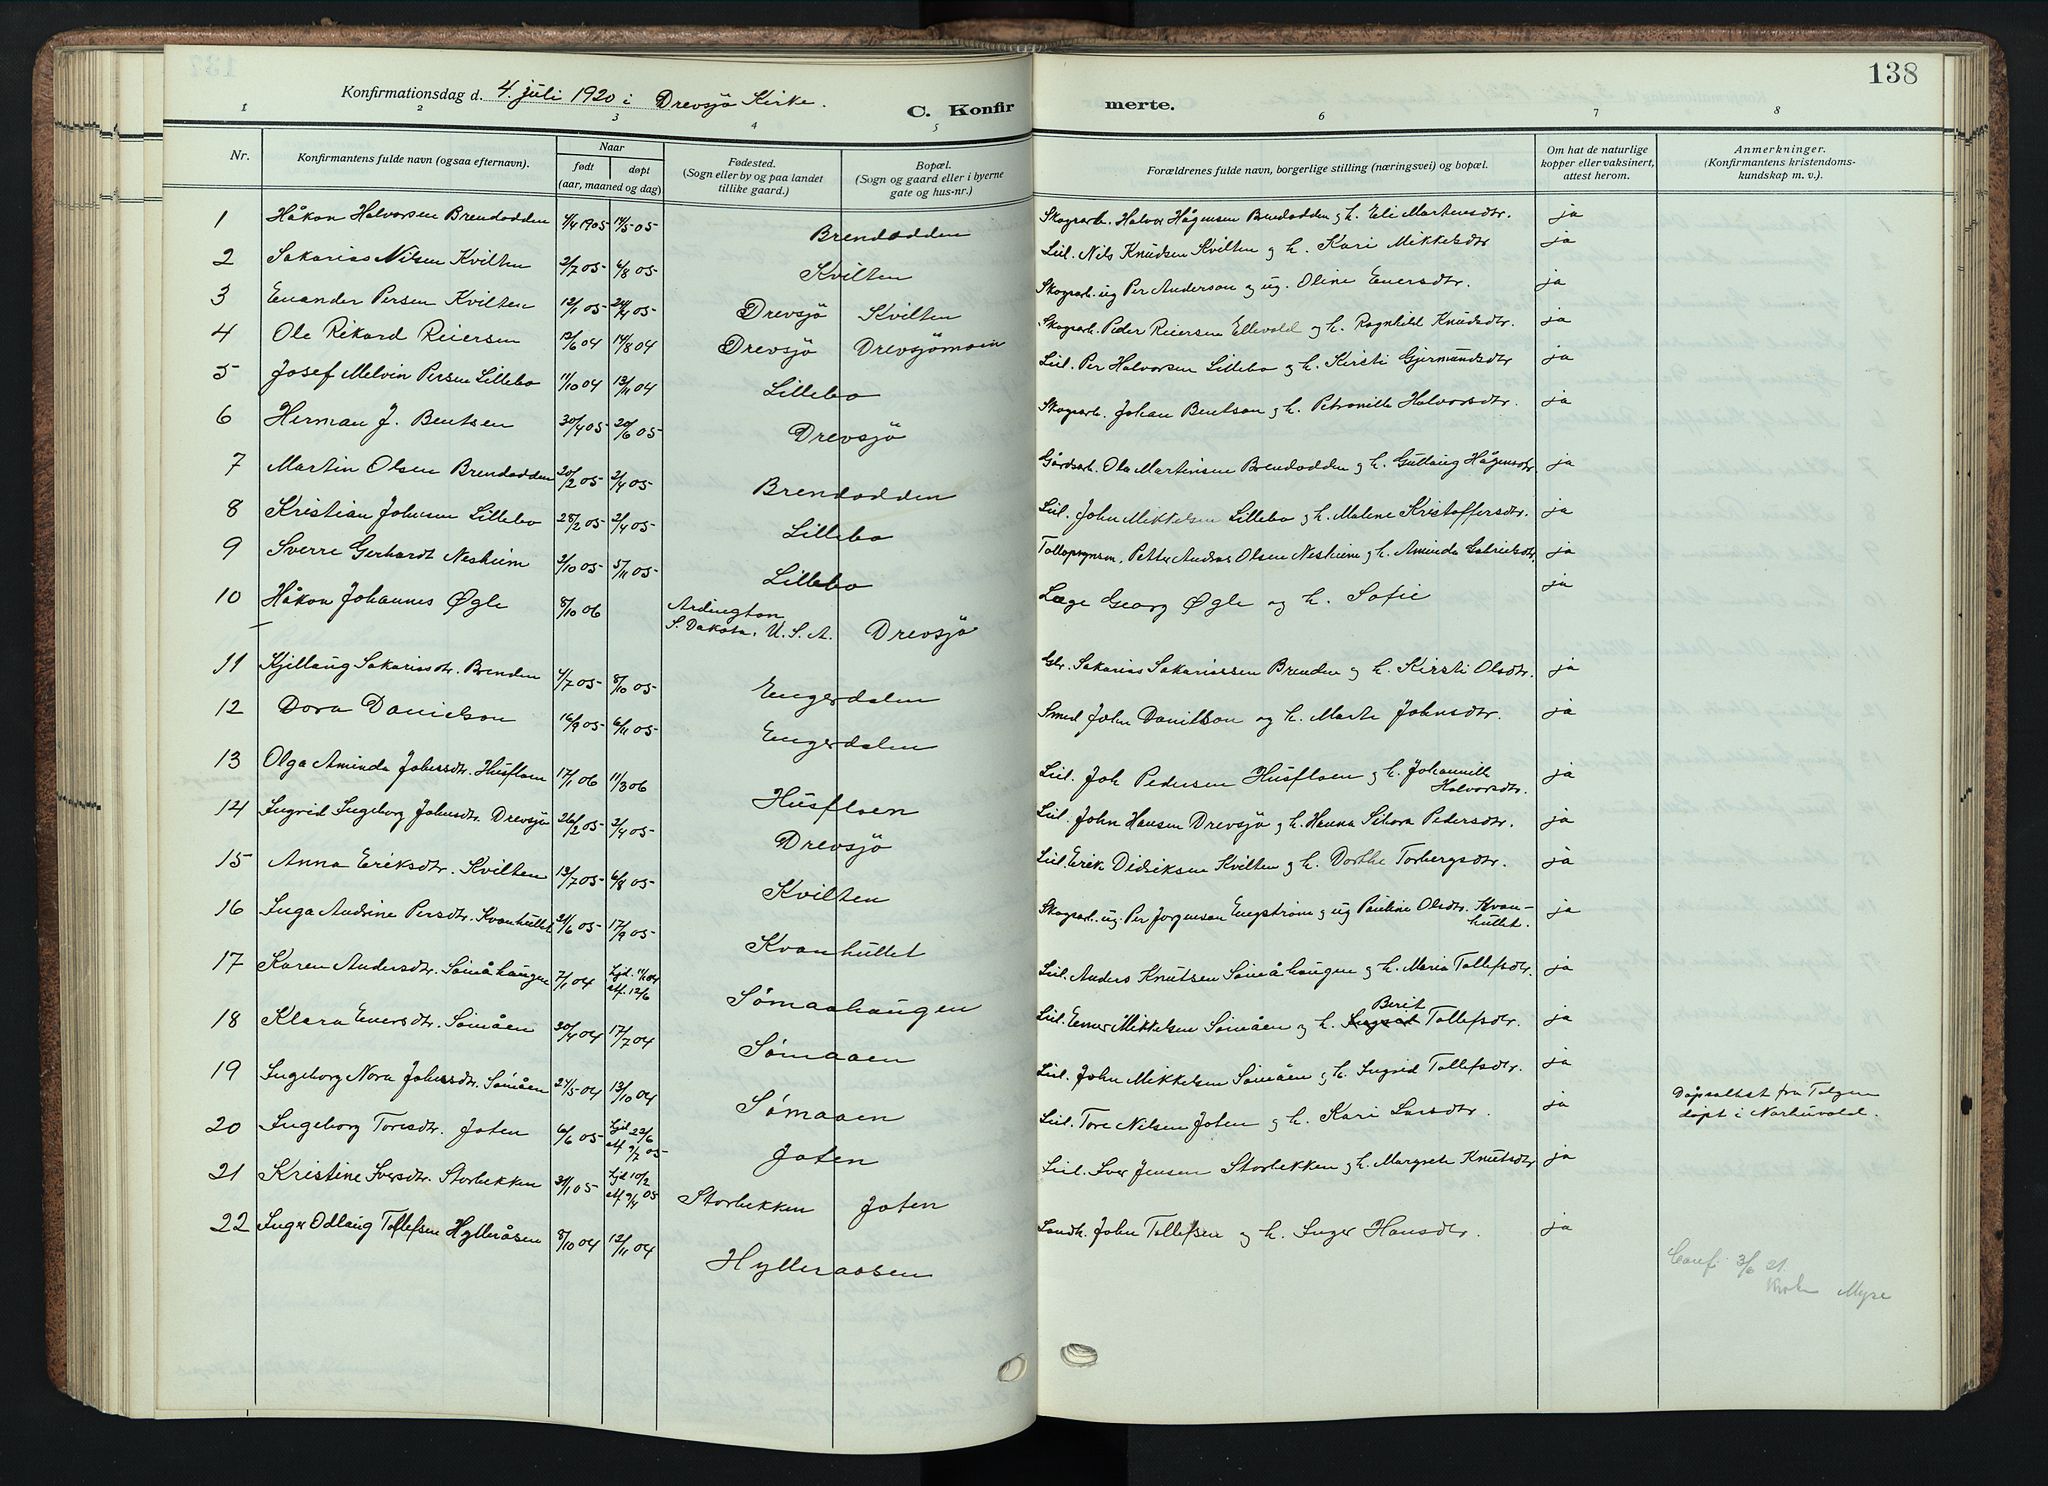 138
Konfirmationsdag d. 4. juli 1920 i Drevsjö Kirke.
C. Konfir merte.
1 2 3 4 5 6 7 8
Nr. Konfirmantens fulde navn (ogsaa efternavn). Naar født døpt (aar, maaned og dag) Fødested. (Sogn eller by og paa landet tillike gaard.) Bopæl. (Sogn og gaard eller i byerne gate og hus-nr.) Forældrenes fulde navn, borgerlige stilling (næringsvei) og bopæl. Om hat de naturlige kopper eller vaksinert, attest herom. Anmerkninger. (Konfirmantens kristendoms-kundskap m. v.).
1 Håkon Halvorsen Brendodden 4/4 1905 14/5 05 Brendodden Skogsarb. Halvor Hågensen Brendodden og h. Eli Martensdtr. ja
2 Sakarias Nilsen Kvilten 2/7 05 6/8 05 Kvilten Leil. Nils Knudsen Kvilten og h. Kari Mikkelsdtr ja
3 Enander Persen Kvilten 12/1 05 24/4 05 Drevsjö Kvilten Skogsarb. ug Per Anderson og ug. Oline Enersdtr. ja
4 Ole Rikard Reiersen 12/6 04 14/8 04 Drevsjö Drevsjömoen Skogsarb. Peder Reiersen Ellevold og h. Ragnhild Knudsdtr. ja
5 Josef Melvin Persen Lillebo 11/10 04 13/11 04 Lillebo Leil. Per Halvorsen Lillebo og h. Kirsti Gjermundsdtr ja
6 Herman J. Bentsen 30/4 05 20/6 05 Drevsjö Skogsarb. Johan Bentson og h. Petronille Halvorsdtr. ja
7 Martin Olsen Brendodden 20/2 05 2/4 05 Brendodden Gårdsarb. Ola Martinsen Brendodden og h. Gullaug Hågensdtr ja
8 Kristian Johnsen Lillebo 28/2 05 2/4 05 Lillebo Leil. John Mikkelsen Lillebo og h. Malene Kristoffersdtr. ja
9 Sverre Gerhardt Neshiem 2/10 05 5/11 05 Lillebo Tollopsynsm. Petter Andreas Olsen Neshiem og h. Aminda Gabrielsdtr. ja
10 Håkon Johannes Øgle 8/10 06 Ardington S. Dakota, U. S. A. Drevsjö Læge Georg Øgle og h. Sofie ja
11 Kjellaug Sakariasdtr. Brenden 4/7 05 8/10 05 Engerdalen Gbr. Sakarias Sakariassen Brenden og h. Kirsti Olsdtr. ja
12 Dora Danielson 16/9 05 6/11 05 Engerdalen Smed John Danielson og h. Marte Johnsdtr. ja
13 Olga Aminda Johnsdtr. Husfloen 17/1 06 11/3 06 Husfloen Leil. Joh Pedersen Husfloen og h. Johannille Halvorsdtr. ja
14 Ingrid Ingeborg Johnsdtr. Drevsjö 26/2 05 2/4 05 Drevsjö Leil. John Hansen Drevsjö og h. Hanna Sikora Pedersdtr. ja
15 Anna Eriksdtr. Kvilten 13/7 05 6/8 05 Kvilten Leil Erik Didriksen Kvilten og h. Dorthe Torbergsdtr. ja
16 Inga Andrine Persdtr. Kvanhullet 21/6 05 17/9 05 Kvanhullet Skogsarb. ug. Per Jorgensen Engström og ug Pauline Olsdtr. Kvan-hullet. ja
17 Karen Andersdtr. Sömåhaugen 7/1 04 hjd. 17/1 04 stf. 12/6 Sømaahaugen Leil. Anders Knutsen Sömåhaugen og h. Maria Tollefsdtr. ja
18 Klara Enersdtr. Sömåen 30/4 04 17/7 04 Sømaaen Leil. Enner Mikkelsen Sömåen og h. Berit Tollefsdtr. ja
19 Ingeborg Nora Johnsdtr. Sömåen 27/5 04 13/10 04 Sømaaen Leil. John Mikkelsen Sömåen og h. Ingrid Tollefsdtr. ja
20 Ingeborg Toresdtr. Joten 6/6 05 hjd. 22/6 stf 9/7 05 Joten Leil. Tore Nilsen Joten og h. Kari Larsdtr. ja Dåpsattest fra Tolgen döpt i Narbuvold.
21 Kristine Iversdtr. Storbekken 31/1 05 hjd 10/2 stf 9/4 05 Storbekken Joten Leil. Iver Jensen Storbekken og h. Margrete Knutsdtr ja
22 Inger Odlaug Tollefsen Hylleråsen 8/10 04 12/11 04 Hylleraasen Landh. John Tollefsen og h. Inger Hansdtr. ja
Conf. 3/6 21.
Myre